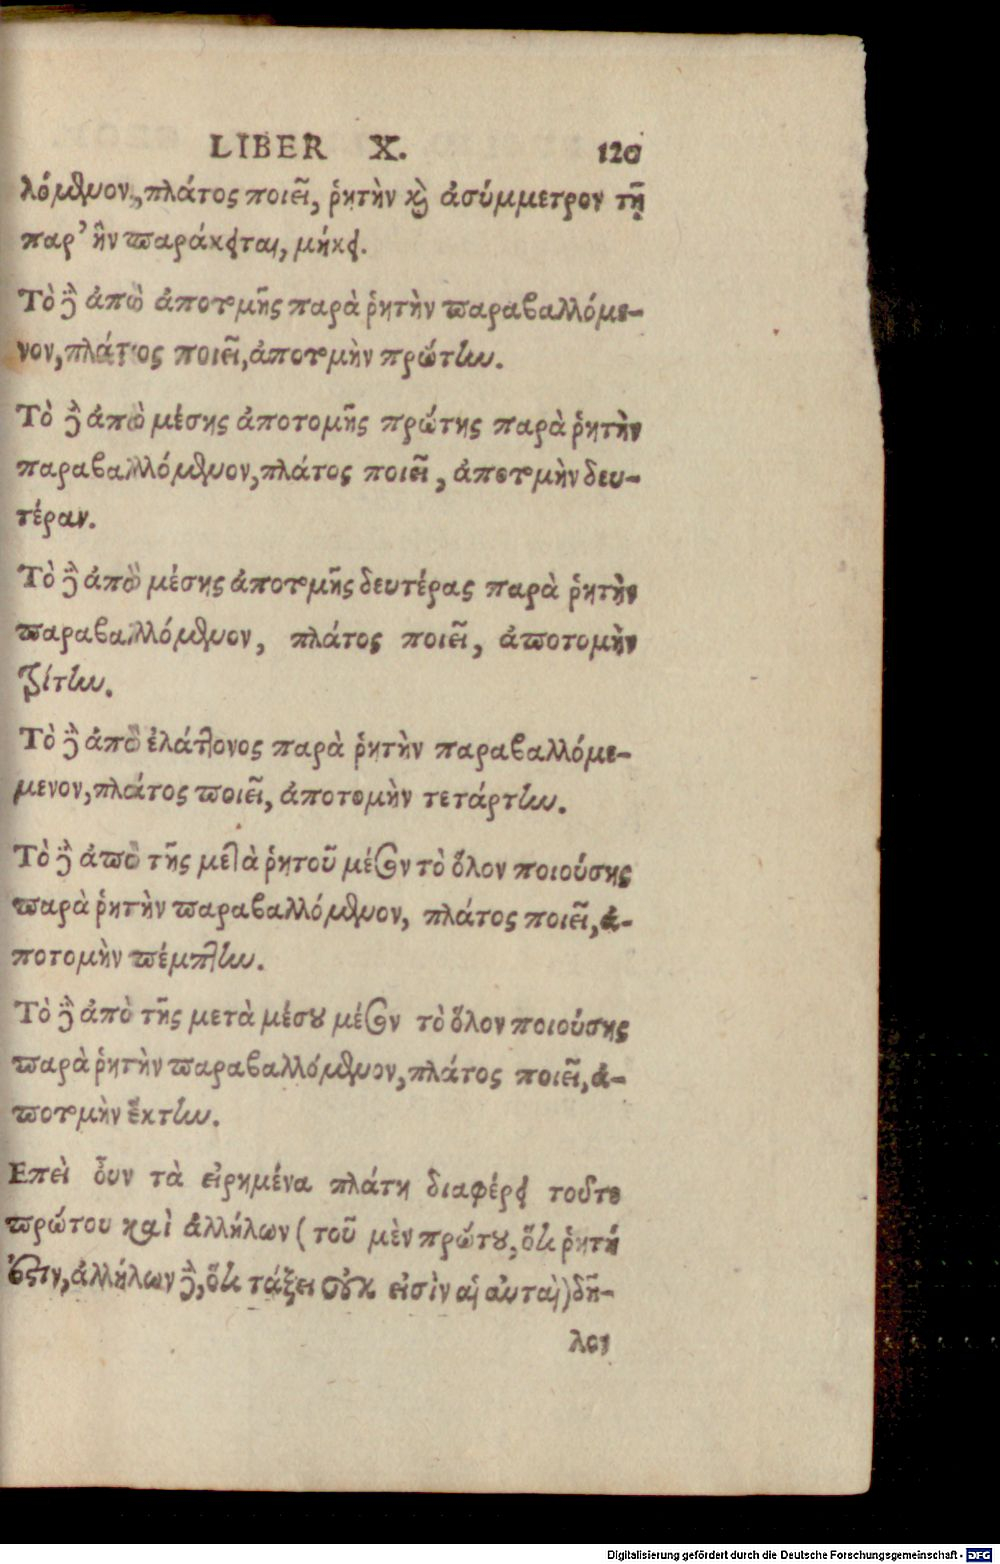 LIBER X. 120
λόμενον, πλάτος ποιεῖ, ῥητὴν καὶ ἀσύμμετρον τῇ
παρ' ἣν παράκειται, μήκει.
Τὸ δὲ ἀπὸ ἀποτομῆς παρὰ ῥητὴν παραβαλλόμε-
νον, πλάτος ποιεῖ, ἀποτομὴν πρώτην.
Τὸ δὲ ἀπὸ μέσης ἀποτομῆς πρώτης παρὰ ῥητὴν
παραβαλλόμενον, πλάτος ποιεῖ, ἀποτομὴν δευ-
τέραν.
Τὸ δὲ ἀπὸ μέσης ἀποτομῆς δευτέρας παρὰ ῥητὴν
παραβαλλόμενον, πλάτος ποιεῖ, ἀποτομὴν
τρίτην.
Τὸ δὲ ἀπὸ ἐλάττονος παρὰ ῥητὴν παραβαλλόμε-
μενον, πλάτος ποιεῖ, ἀποτομὴν τετάρτην.
Τὸ δὲ ἀπὸ τῆς μετὰ ῥητοῦ μέσον τὸ ὅλον ποιούσης
παρὰ ῥητὴν παραβαλλόμενον, πλάτος ποιεῖ, ἀ-
ποτομὴν πέμπτην.
Τὸ δὲ ἀπὸ τῆς μετὰ μέσου μέσον τὸ ὅλον ποιούσης
παρὰ ῥητὴν παραβαλλόμενον, πλάτος ποιεῖ, ἀ-
ποτομὴν ἕκτην.
Επεὶ οὖν τὰ εἰρημένα πλάτη διαφέρει τοῦτε
πρώτου καὶ ἀλλήλων (τοῦ μὲν πρώτου, ὅτι ῥητή
ἐστιν, ἀλλήλων δὲ, ὅτι τάξει οὐκ εἰσὶν αἱ αὐταὶ) δῆ-
λοι
Digitalisierung gefördert durch die Deutsche Forschungsgemeinschaft - DFG